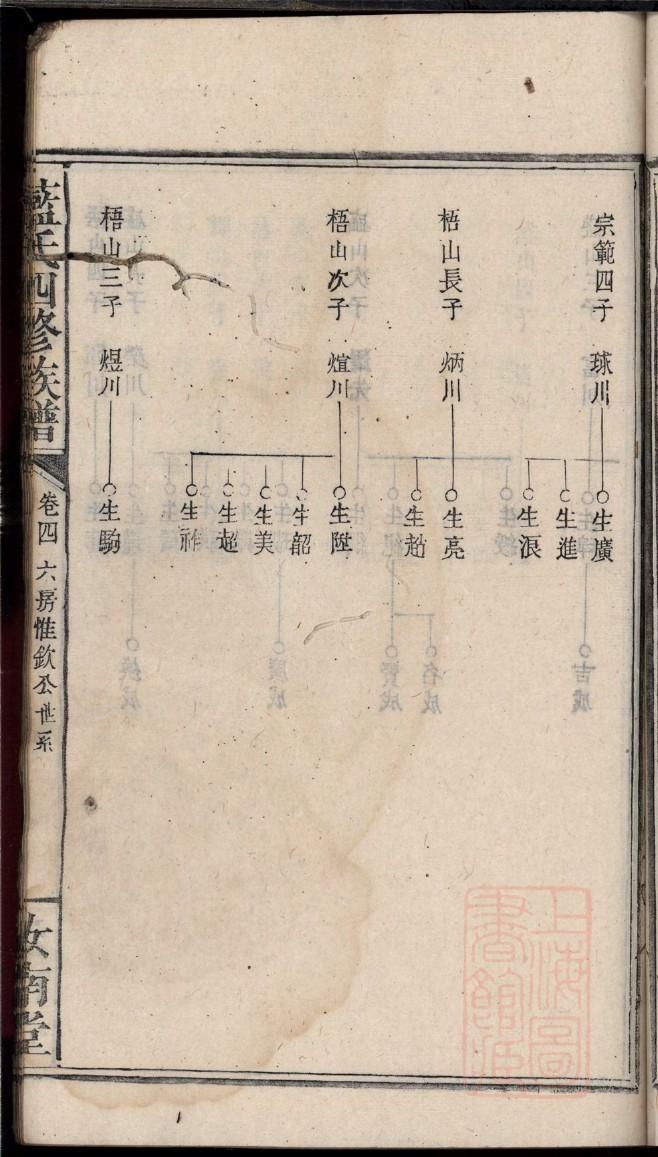 宗範四子 球川
生廣
生進
生浪
梧山長子 炳川
生亮
生趈
梧山次子 煊川
生陞
生韶
生美
生超
生祚
梧山三子 煜川
生駒
藍氏四修族譜
卷四 六房惟欽公世系
汝南堂
上海圖
書館藏